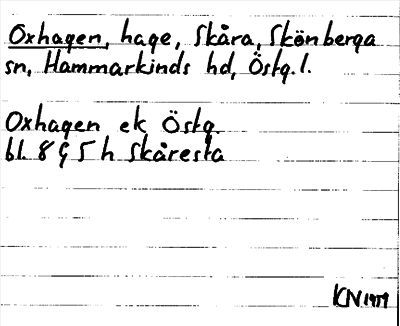 Oxhagen, hage, Skåra, Skönberga
sn, Hammarkinds hd, Östg.l.
Oxhagen ek Östg.
bl. 8 G 5 h Skåresta
KN 1979